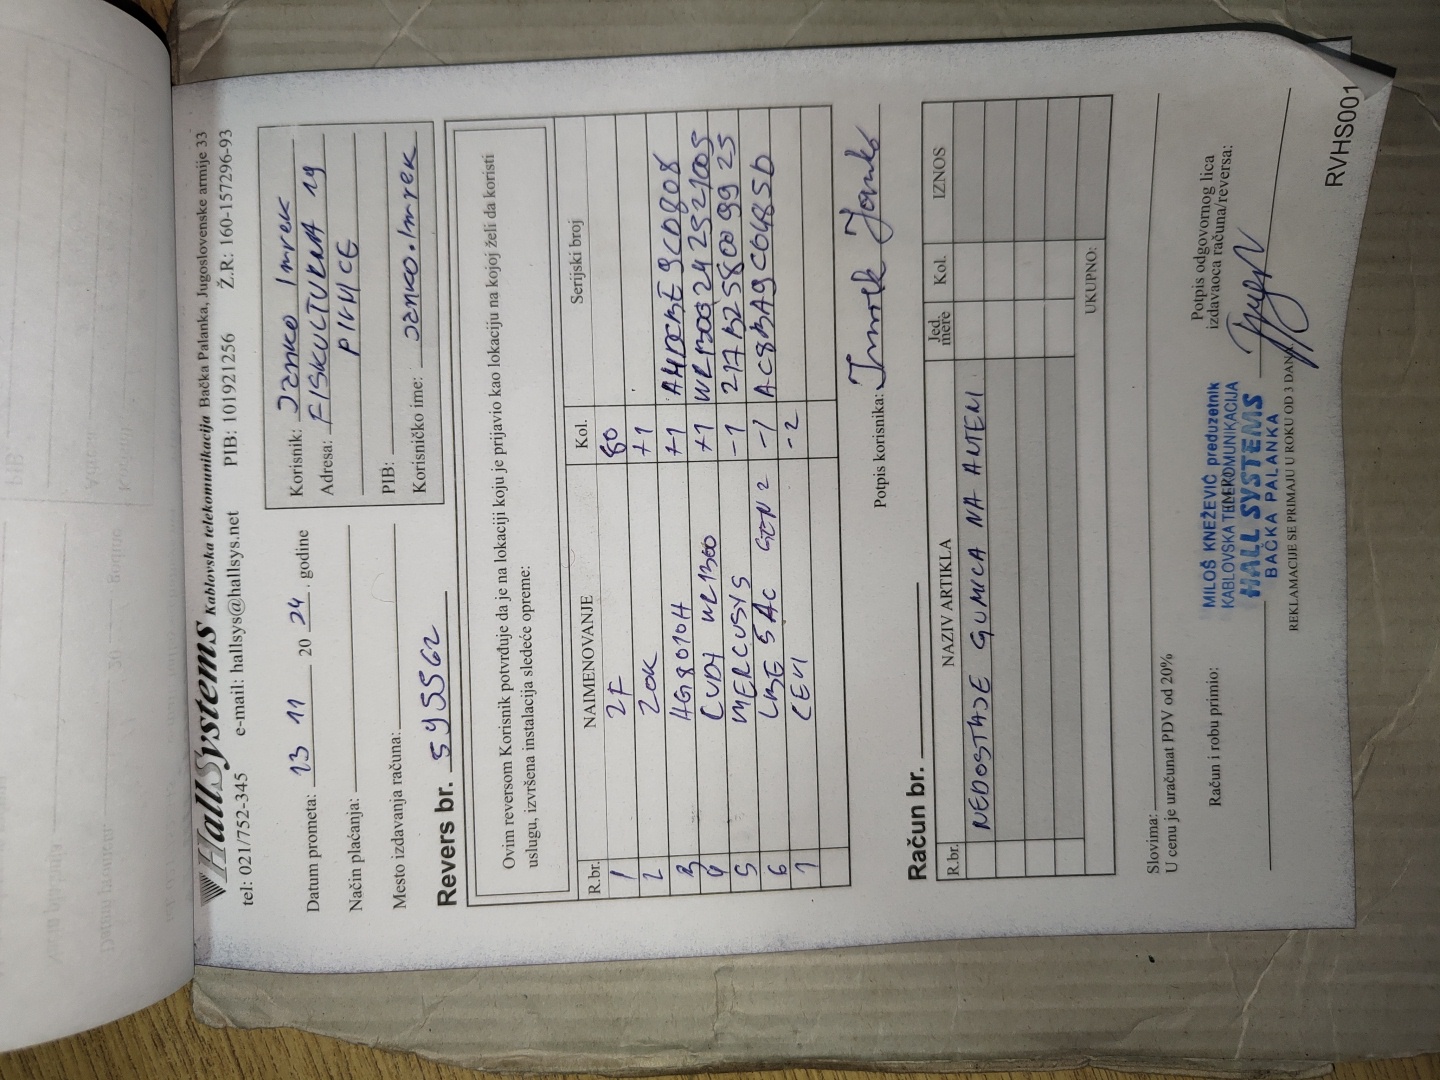 HallSystems Kablovska telekomunikacija Bačka Palanka, Jugoslovenske armije 33
tel: 021/752-345 e-mail: hallsys@hallsys.net PIB: 101921256 Ž.R: 160-157296-93
Datum prometa: 13 11 20 24. godine
Način plaćanja:
Mesto izdavanja računa:
Korisnik: Janko Imrek
Adresa: FISKULTURNA 19
PIVNICE
PIB:
Korisničko ime: janko.imrek
Revers br. 595562
Ovim reversom Korisnik potvrđuje da je na lokaciji koju je prijavio kao lokaciju na kojoj želi da koristi
uslugu, izvršena instalacija sledeće opreme:
R.br. NAIMENOVANJE Kol. Serijski broj
1 2F 80
2 ZOK +1
3 AG8010H +1
4 CUDY WR1300 +1
5 MERCUSYS -1
6 LBE 5AC GEN2 -1
7 CEVI -2
Potpis korisnika: Imrek Janko
Račun br.
R.br. NAZIV ARTIKLA Jed. mere Kol. IZNOS
NEDOSTAJE GUMICA NA ANTENI
UKUPNO:
Slovima:
U cenu je uračunat PDV od 20%
Račun i robu primio:
MILOŠ KNEŽEVIĆ preduzetnik
KABLOVSKA TELEKOMUNIKACIJA
HALL SYSTEMS
BAČKA PALANKA
Potpis odgovornog lica
izdavaoca računa/reversa:
REKLAMACIJE SE PRIMAJU U ROKU OD 3 DANA.
RVHS001